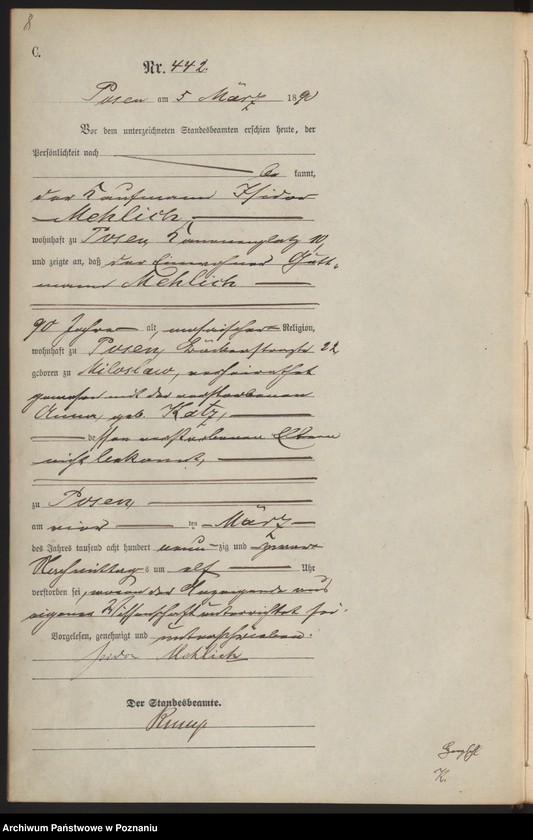 8
C.
Nr. 442.
Posen am 5 März 1890
Vor dem unterzeichneten Standesbeamten erschien heute, der
Persönlichkeit nach
be kannt,
der Kaufmann Isidor
Mehlich,
wohnhaft zu Posen, Kanonenplatz 10,
und zeigte an, daß der Einwohner Gutt-
mann Mehlich
90 Jahre alt, mosaischer Religion,
wohnhaft zu Posen, Bäckerstraße 22
geboren zu Miloslaw, verheirathet
gewesen mit der verstorbenen
Anna, geb. Katz,
dessen verstorbenen Eltern
nicht bekannt,
zu Posen,
am vier ten März
des Jahres tausend acht hundert neun zig und zwar
Nachmittags um elf Uhr
verstorben sei, wovon der Anzeigende aus
eigener Wissenschaft unterrichtet sei.
Vorgelesen, genehmigt und unterschrieben.
Isidor Mehlich
Der Standesbeamte.
K.
Archiwum Państwowe w Poznaniu